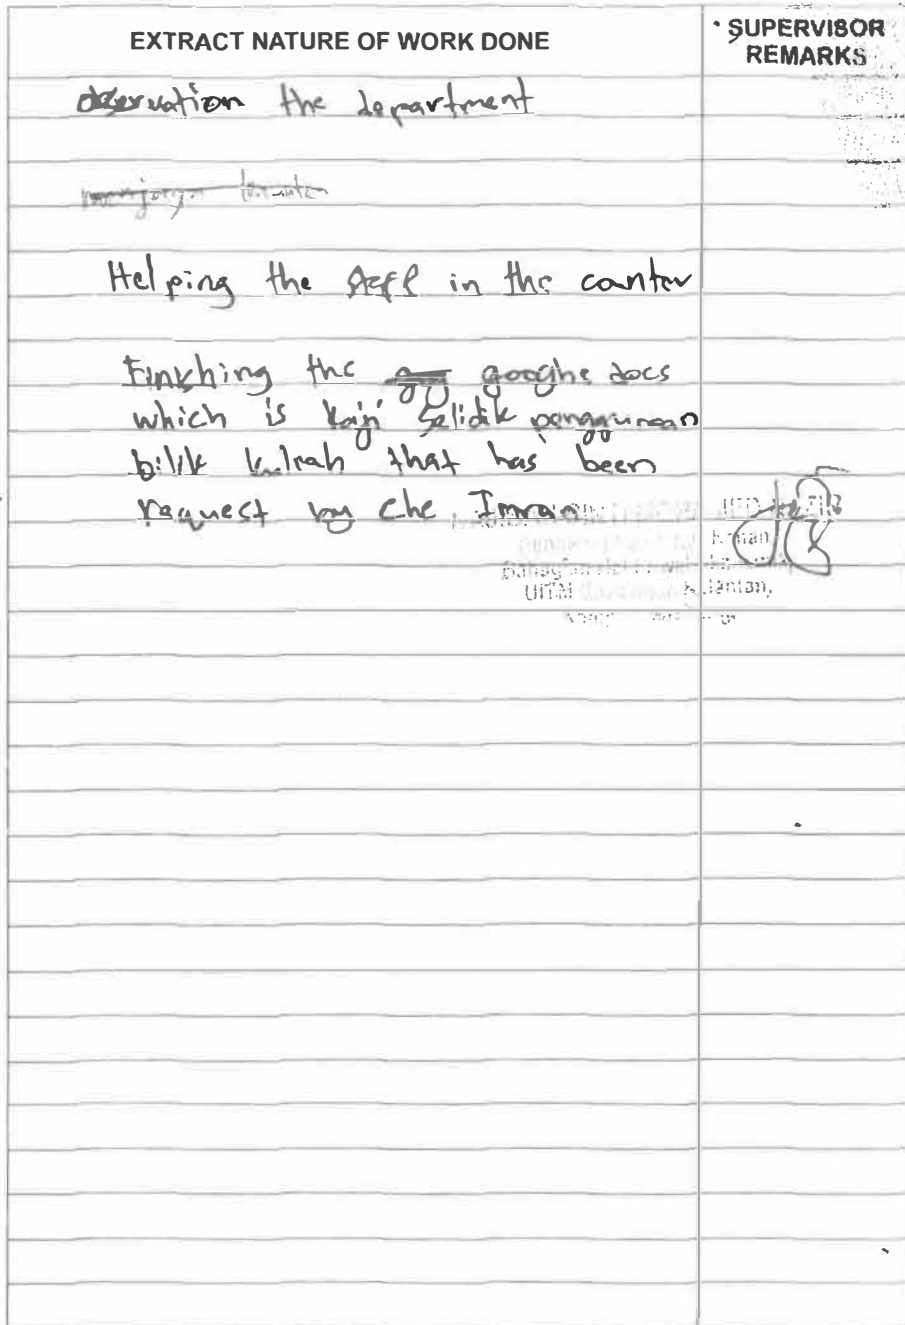 EXTRACT NATURE OF WORK DONE
SUPERVISOR
REMARKS
observation the department
Helping the staff in the counter
Finishing the googhe docs
which is kaji selidik penggunaan
bilik kuliah that has been
request by che Imran
UiTM